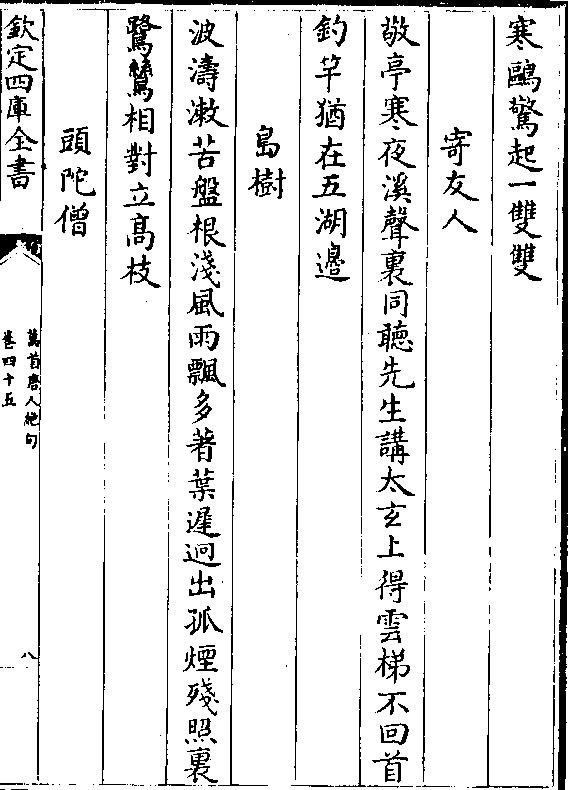 寒鷗驚起一雙雙
寄友人
敬亭寒夜溪聲裏同聽先生講太玄上得雲梯不回首
釣竿猶在五湖邉
島樹
波濤漱苦盤根淺風雨飄多著葉遲迥出孤煙殘照裏
鷺鷥相對立髙枝
頭陀僧
欽定四庫全書
萬首唐人絶句
卷四十五
八